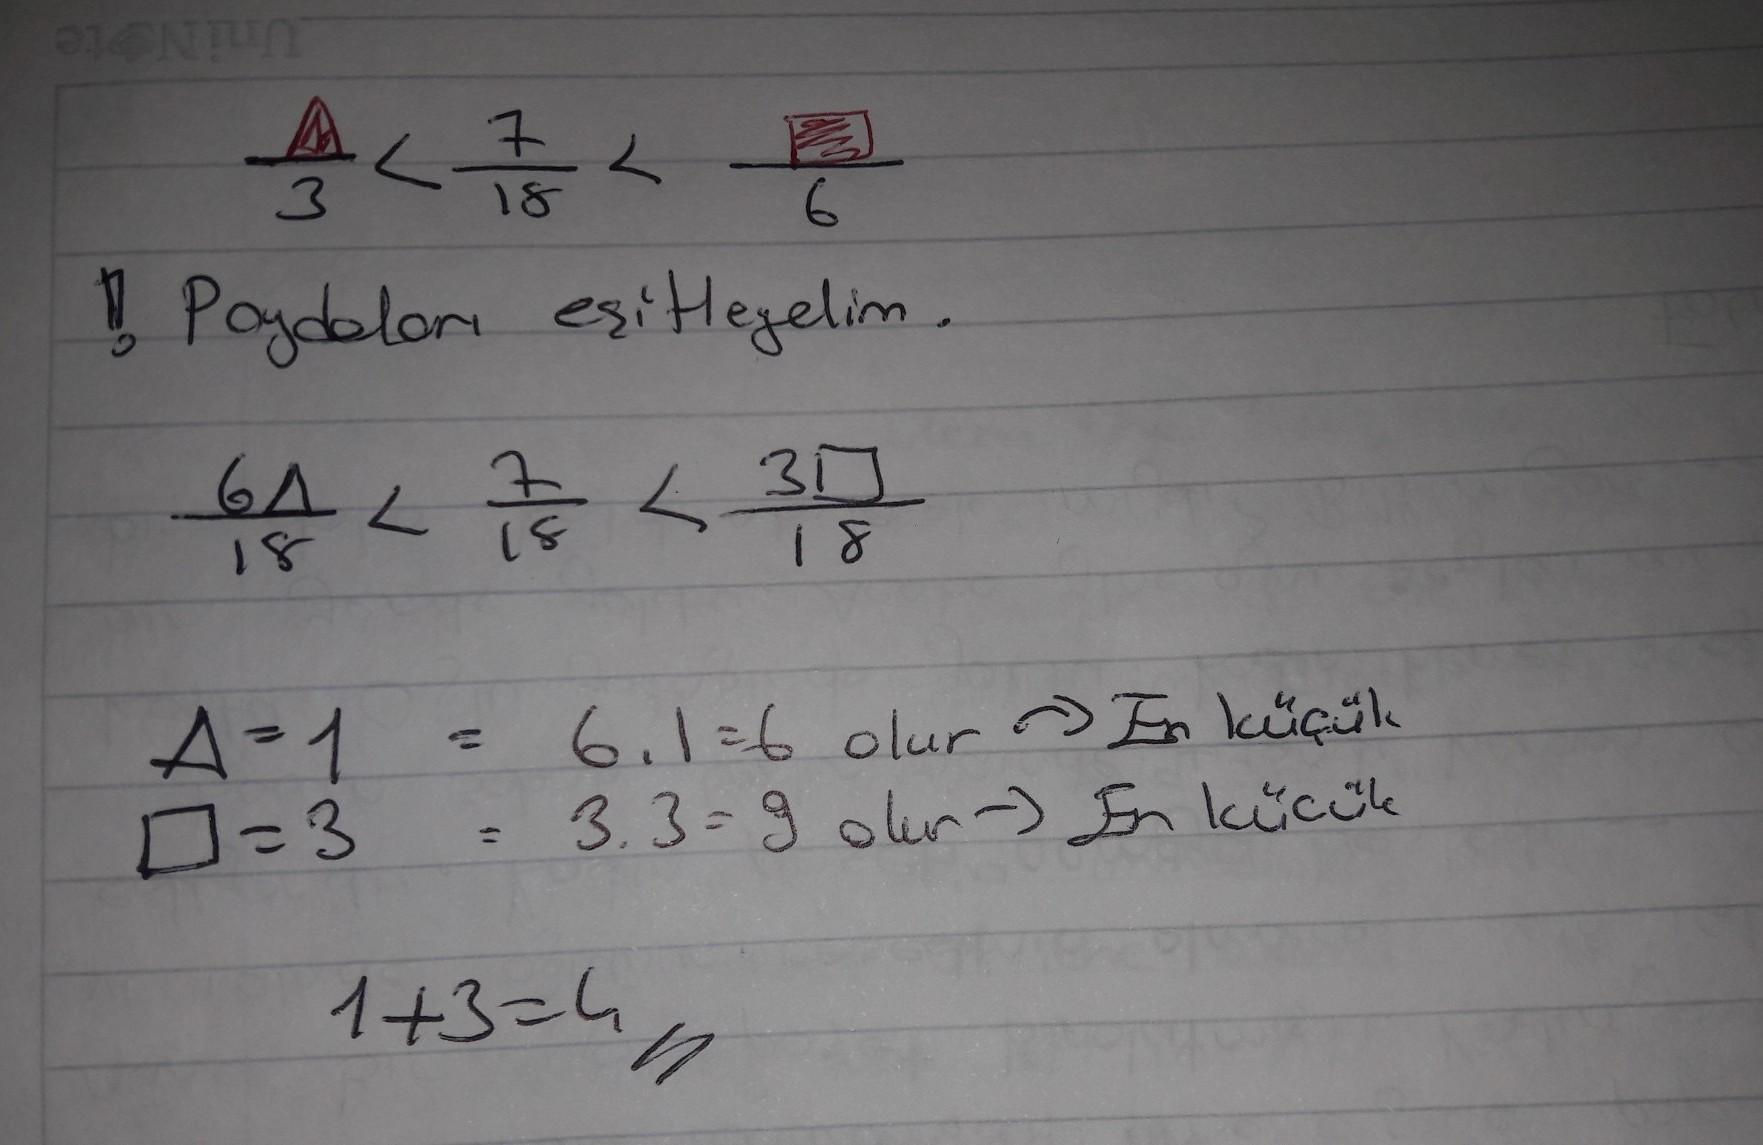 UniNote
▲/3 < 7/18 < ■/6
! Paydaları eşitleyelim.
6Δ/18 < 7/18 < 3□/18
Δ = 1 = 6.1=6 olur → En küçük
□ = 3 = 3.3=9 olur → En kücük
1+3=4